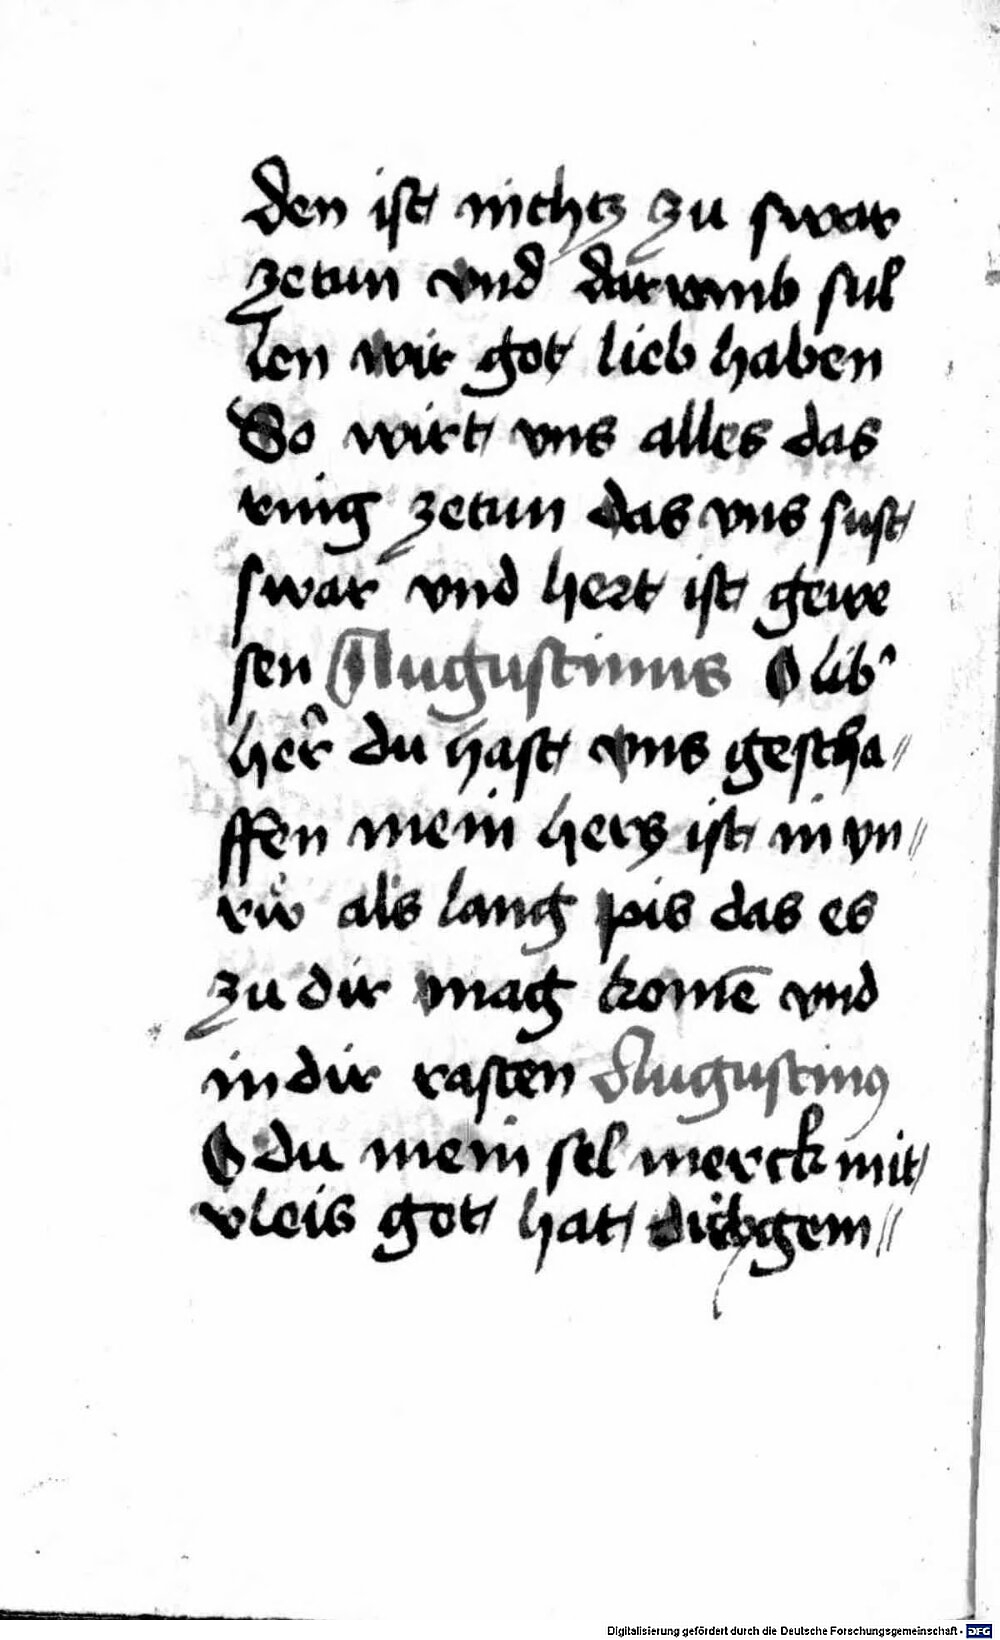 den ist nichtz zu swar
zetun vnd darvmb sul
len wir got lieb haben
So wirt vns alles das
ring zetun das vns sust
swar vnd hert ist gewe
sen Augustinus O lib'
her̄ du hast vns gescha//
ffen mein hercz ist in vn//
růw als lang pis das es
zu dir mag komē vnd
in dir rasten Augustinꝰ
O du mein sel merck mit
vleis got hat dich gem//
Digitalisierung gefördert durch die Deutsche Forschungsgemeinschaft - DFG